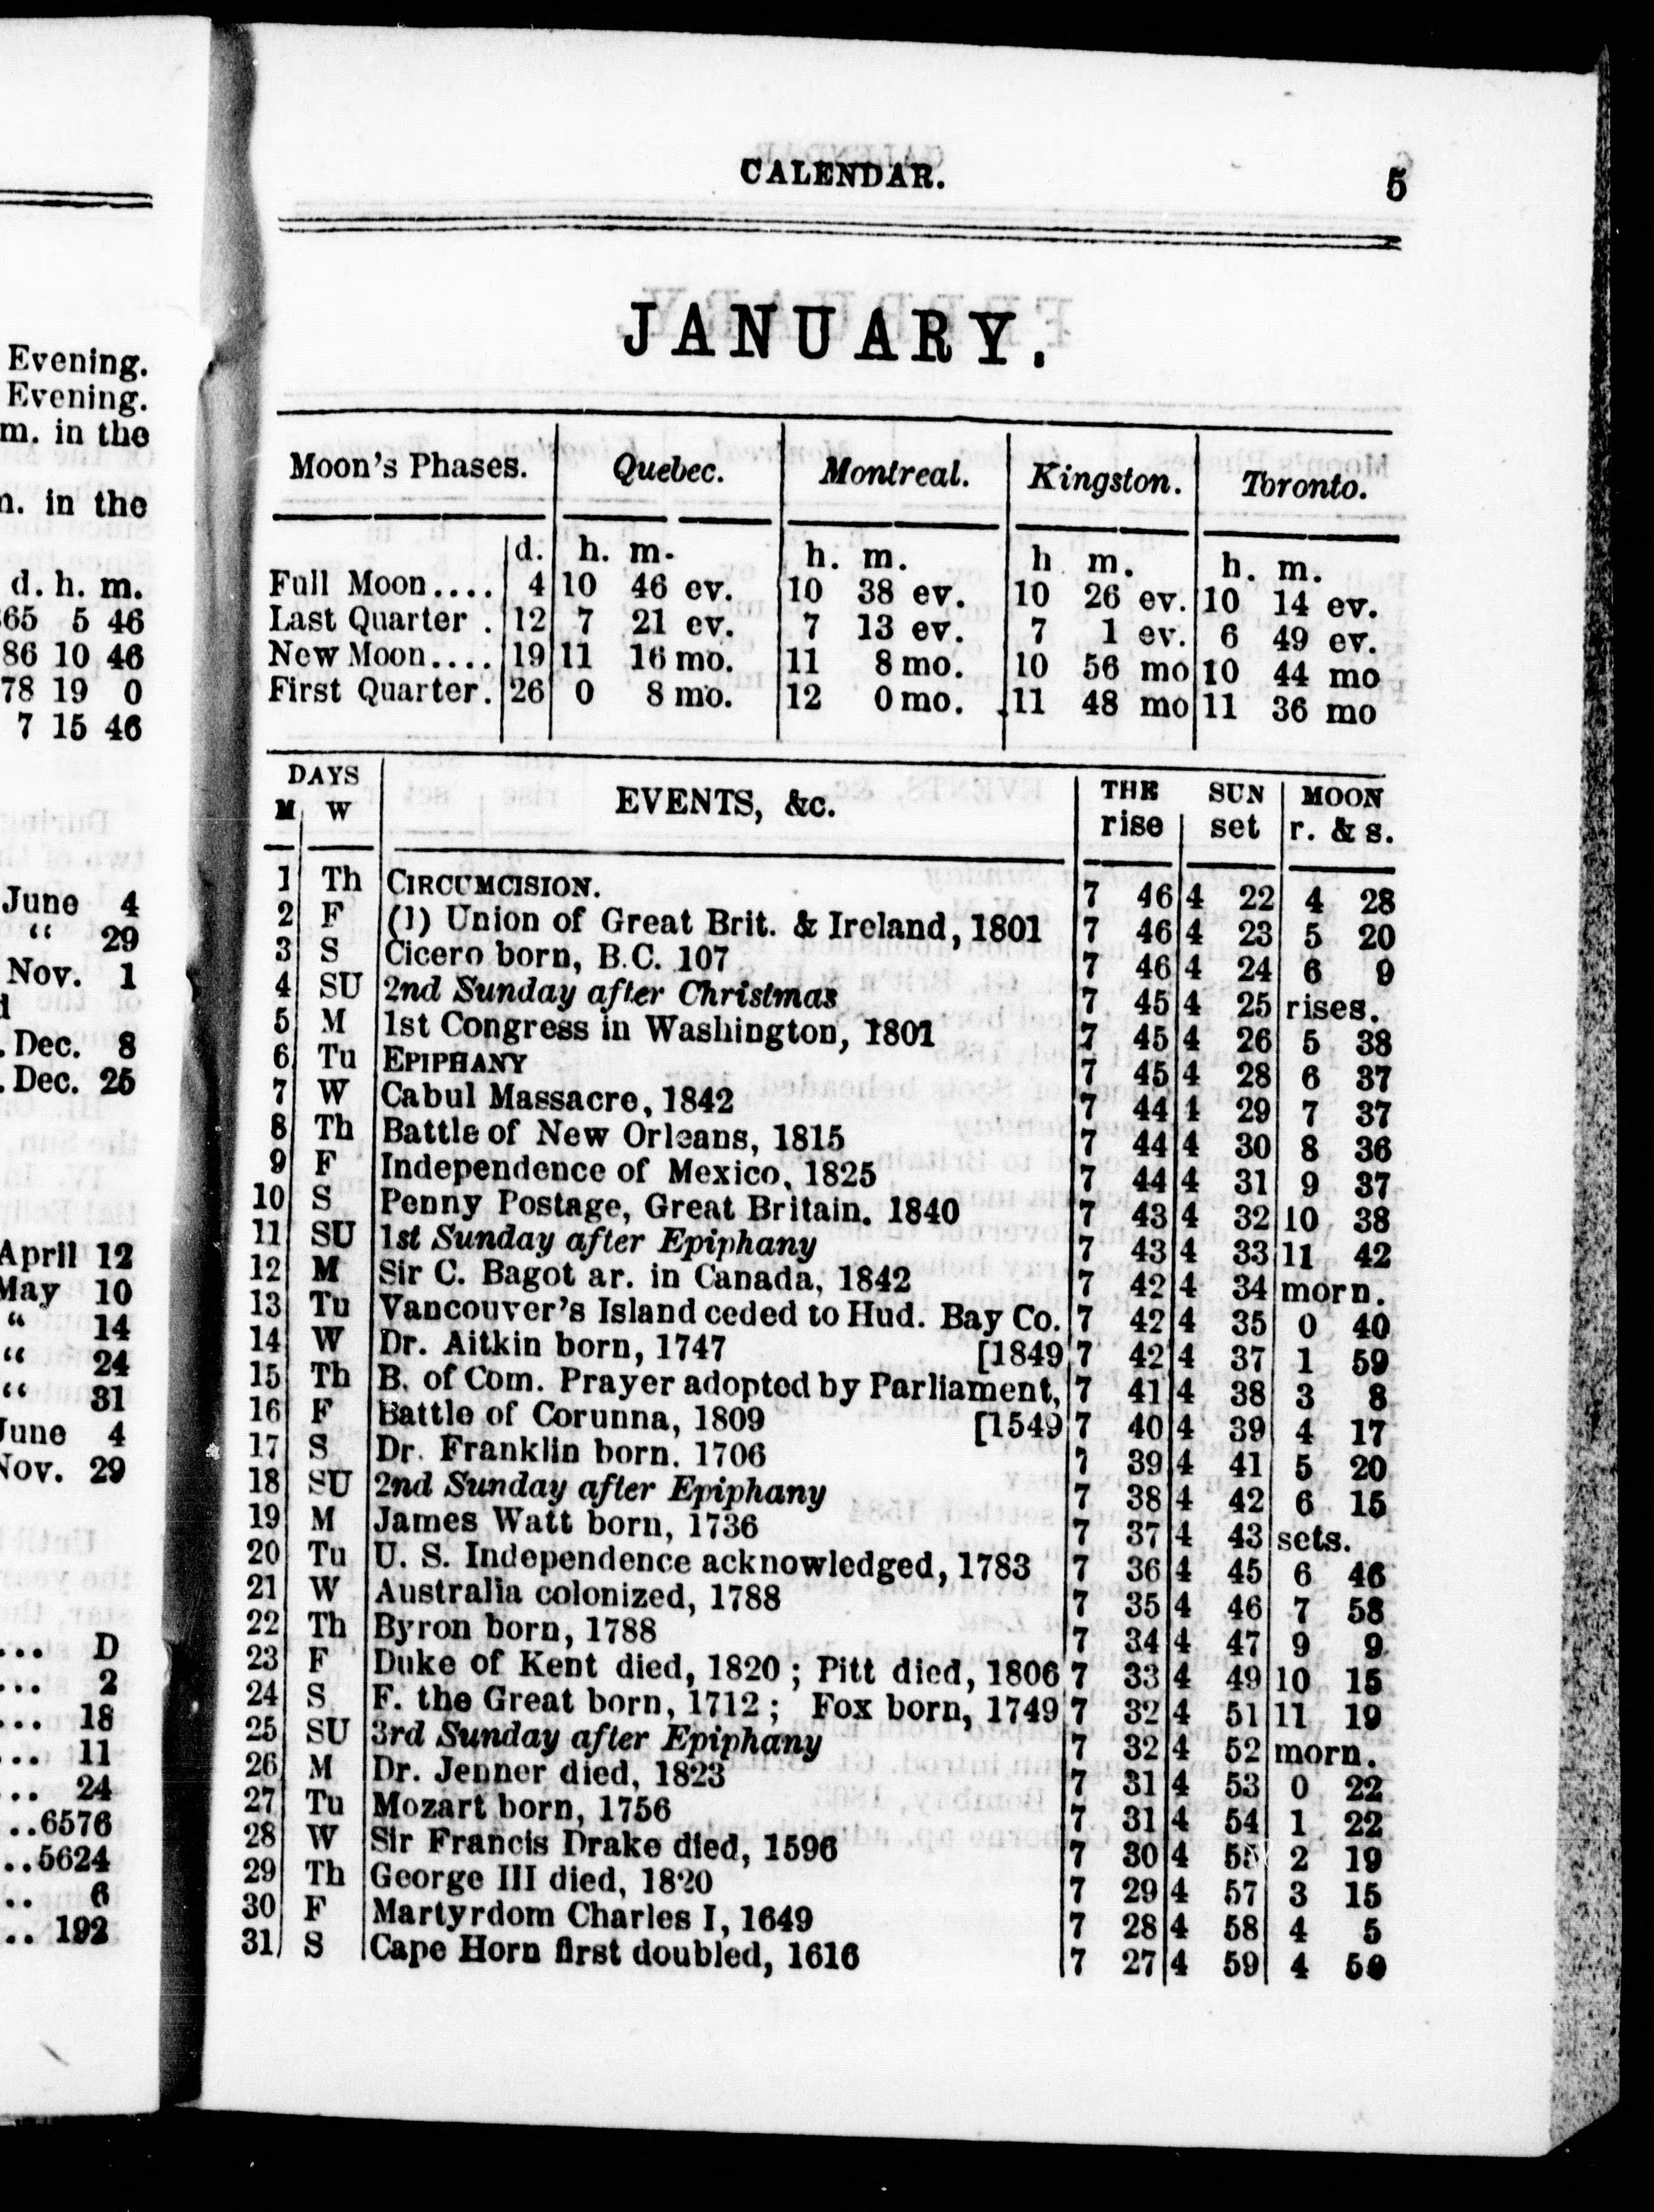 Evening.
Evening.
m. in the
in the
d. h. m.
65 5 46
86 10 46
78 19 0
7 15 46
June 4
“ 29
Nov. 1
Dec. 8
Dec. 25
April 12
May 10
“ 14
“ 24
“ 31
June 4
Nov. 29
... D
... 2
... 18
... 11
... 24
..6576
..5624
.. 6
.. 192
CALENDAR. 5
JANUARY.
Moon's Phases. Quebec. Montreal. Kingston. Toronto.
d. h. m. h. m. h m. h. m.
Full Moon.... 4 10 46 ev. 10 38 ev. 10 26 ev. 10 14 ev.
Last Quarter . 12 7 21 ev. 7 13 ev. 7 1 ev. 6 49 ev.
New Moon.... 19 11 16 mo. 11 8 mo. 10 56 mo 10 44 mo
First Quarter. 26 0 8 mo. 12 0 mo. 11 48 mo 11 36 mo
DAYS EVENTS, &c. THE SUN MOON
M W rise set r. & s.
1 Th CIRCUMCISION. 7 46 4 22 4 28
2 F (1) Union of Great Brit. & Ireland, 1801 7 46 4 23 5 20
3 S Cicero born, B.C. 107 7 46 4 24 6 9
4 SU 2nd Sunday after Christmas 7 45 4 25 rises.
5 M 1st Congress in Washington, 1801 7 45 4 26 5 38
6 Tu EPIPHANY 7 45 4 28 6 37
7 W Cabul Massacre, 1842 7 44 4 29 7 37
8 Th Battle of New Orleans, 1815 7 44 4 30 8 36
9 F Independence of Mexico, 1825 7 44 4 31 9 37
10 S Penny Postage, Great Britain. 1840 7 43 4 32 10 38
11 SU 1st Sunday after Epiphany 7 43 4 33 11 42
12 M Sir C. Bagot ar. in Canada, 1842 7 42 4 34 morn.
13 Tu Vancouver's Island ceded to Hud. Bay Co. 7 42 4 35 0 40
14 W Dr. Aitkin born, 1747 [1849 7 42 4 37 1 59
15 Th B. of Com. Prayer adopted by Parliament, 7 41 4 38 3 8
16 F Battle of Corunna, 1809 [1549 7 40 4 39 4 17
17 S Dr. Franklin born. 1706 7 39 4 41 5 20
18 SU 2nd Sunday after Epiphany 7 38 4 42 6 15
19 M James Watt born, 1736 7 37 4 43 sets.
20 Tu U. S. Independence acknowledged, 1783 7 36 4 45 6 46
21 W Australia colonized, 1788 7 35 4 46 7 58
22 Th Byron born, 1788 7 34 4 47 9 9
23 F Duke of Kent died, 1820 ; Pitt died, 1806 7 33 4 49 10 15
24 S F. the Great born, 1712 ; Fox born, 1749 7 32 4 51 11 19
25 SU 3rd Sunday after Epiphany 7 32 4 52 morn.
26 M Dr. Jenner died, 1823 7 31 4 53 0 22
27 Tu Mozart born, 1756 7 31 4 54 1 22
28 W Sir Francis Drake died, 1596 7 30 4 55 2 19
29 Th George III died, 1820 7 29 4 57 3 15
30 F Martyrdom Charles I, 1649 7 28 4 58 4 5
31 S Cape Horn first doubled, 1616 7 27 4 59 4 50